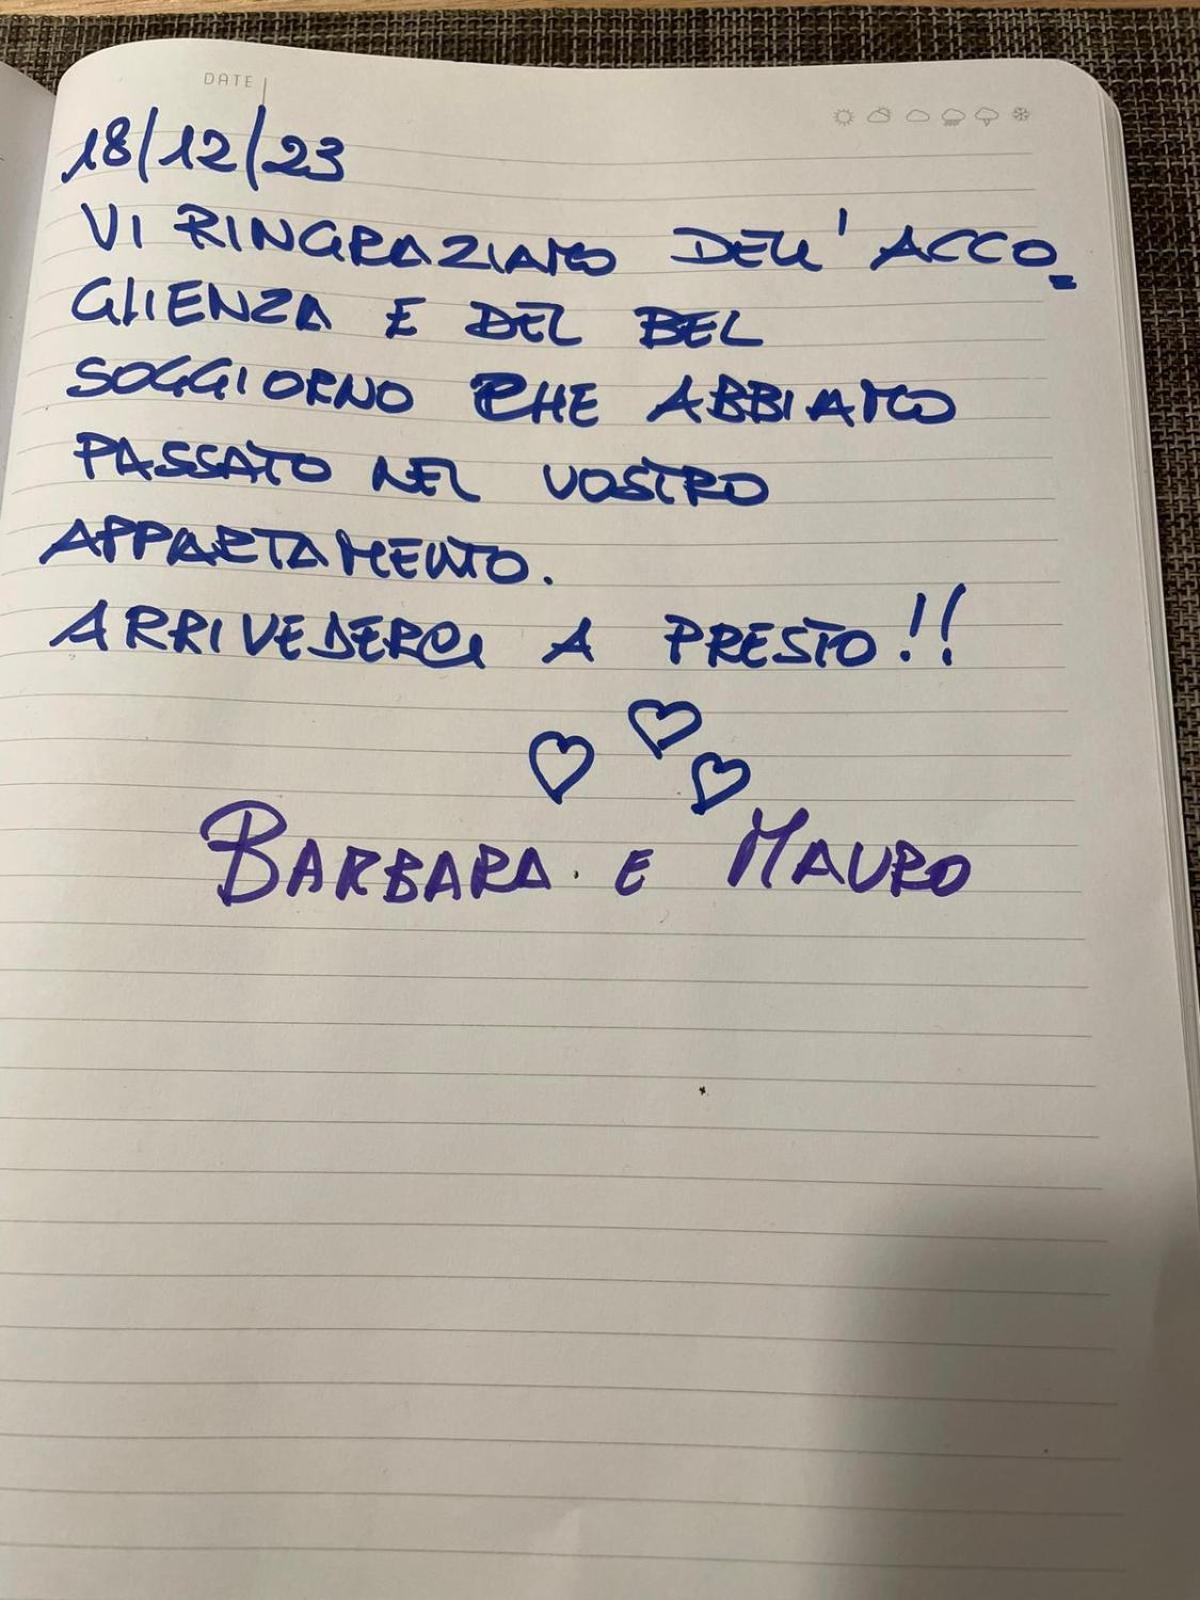 DATE
18/12/23
VI RINGRAZIAMO DELL' ACCO=
GLIENZA E DEL BEL
SOGGIORNO CHE ABBIAMO
PASSATO NEL VOSTRO
APPARTAMENTO.
ARRIVEDERCI A PRESTO!!
BARBARA. E MAURO